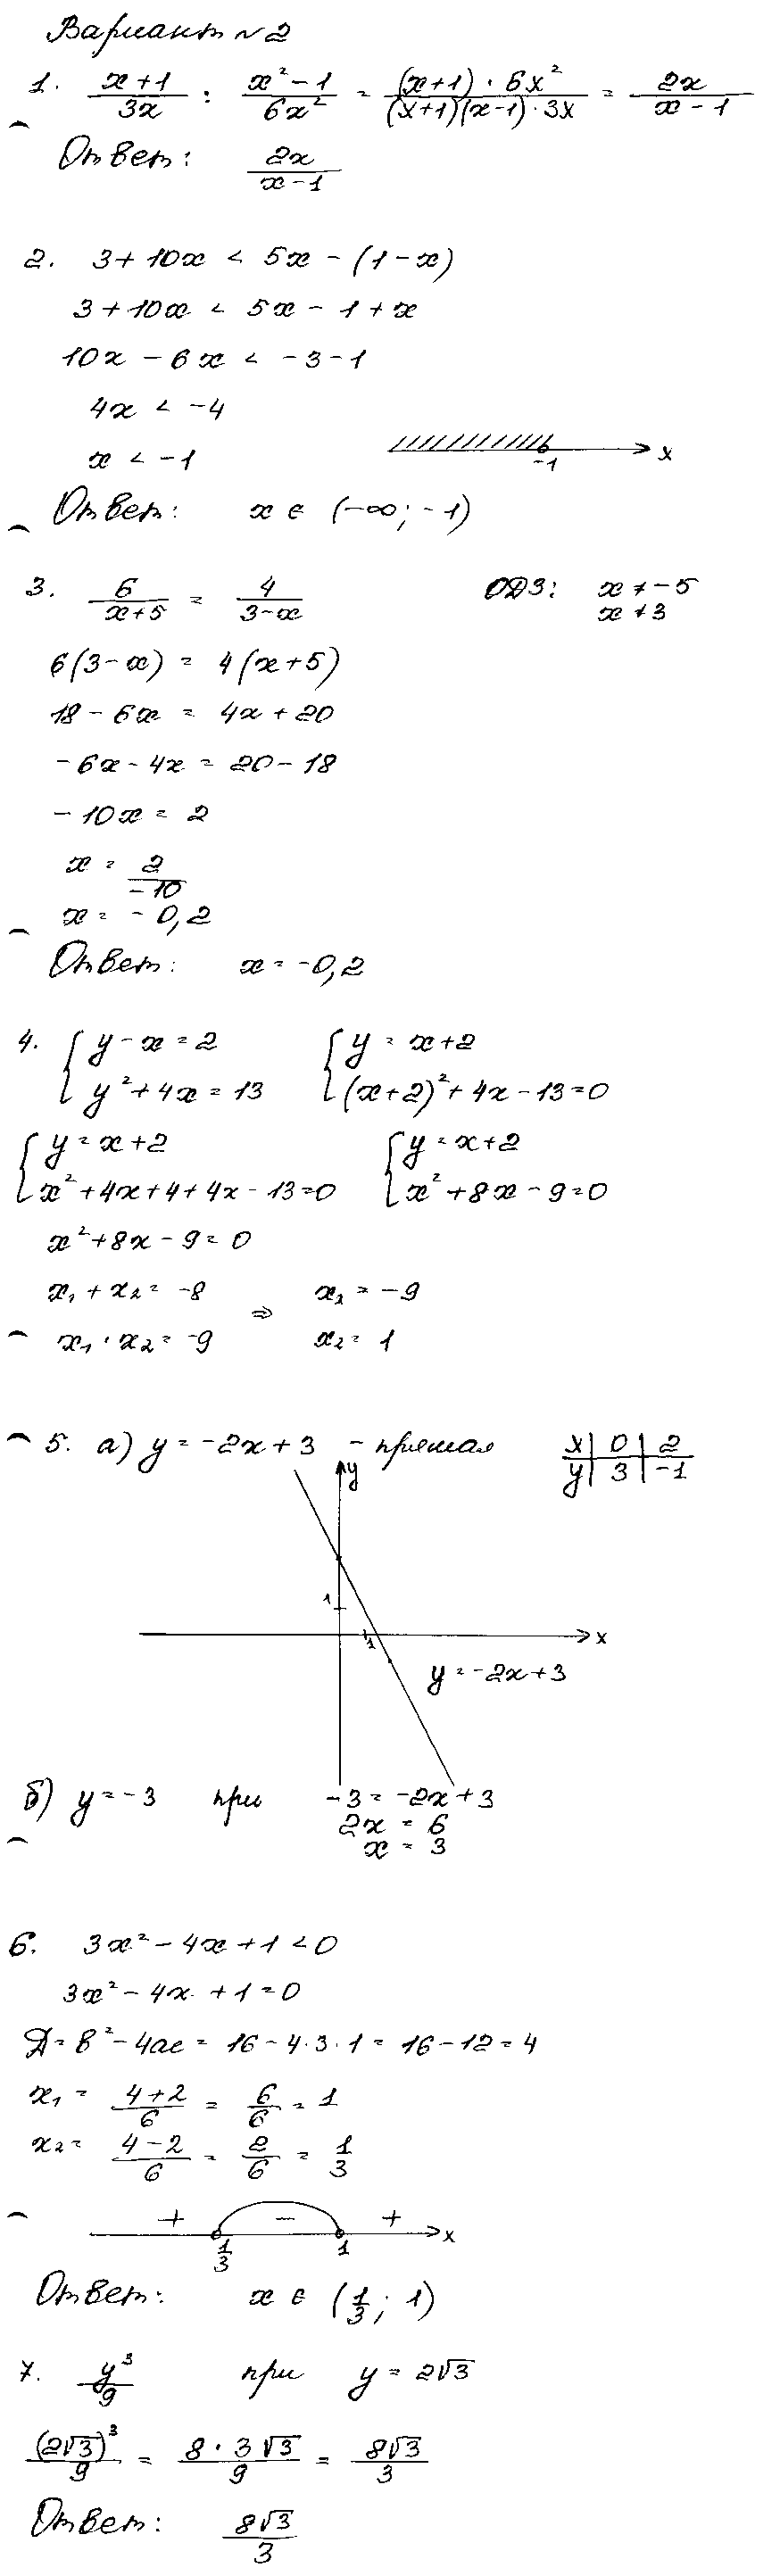 Вариант №2
1. (x+1)/(3x) : (x²-1)/(6x²) = ((x+1)·6x²)/((x+1)(x-1)·3x) = 2x/(x-1)
Ответ: 2x/(x-1)
2. 3+10x < 5x-(1-x)
3+10x < 5x-1+x
10x-6x < -3-1
4x < -4
x < -1
-1 x
Ответ: x ∈ (-∞; -1)
3. 6/(x+5) = 4/(3-x) ОДЗ: x ≠ -5
x ≠ 3
6(3-x) = 4(x+5)
18-6x = 4x+20
-6x-4x = 20-18
-10x = 2
x = 2/(-10)
x = -0,2
Ответ: x = -0,2
4. { y-x=2 { y = x+2
y²+4x=13 (x+2)²+4x-13=0
{ y=x+2 { y=x+2
x²+4x+4+4x-13=0 x²+8x-9=0
x²+8x-9=0
x₁+x₂=-8 ⇒ x₂=-9
x₁·x₂=-9 x₂=1
5. а) y=-2x+3 - прямая x | 0 | 2
y | 3 | -1
y
1
1 x
y=-2x+3
б) y=-3 при -3=-2x+3
2x = 6
x = 3
6. 3x²-4x+1<0
3x²-4x+1=0
Д=в²-4ac=16-4·3·1=16-12=4
x₁ = (4+2)/6 = 6/6 = 1
x₂ = (4-2)/6 = 2/6 = 1/3
+ - +
1/3 1 x
Ответ: x ∈ (1/3; 1)
7. y³/9 при y = 2√3
(2√3)³/9 = (8·3√3)/9 = 8√3/3
Ответ: 8√3/3